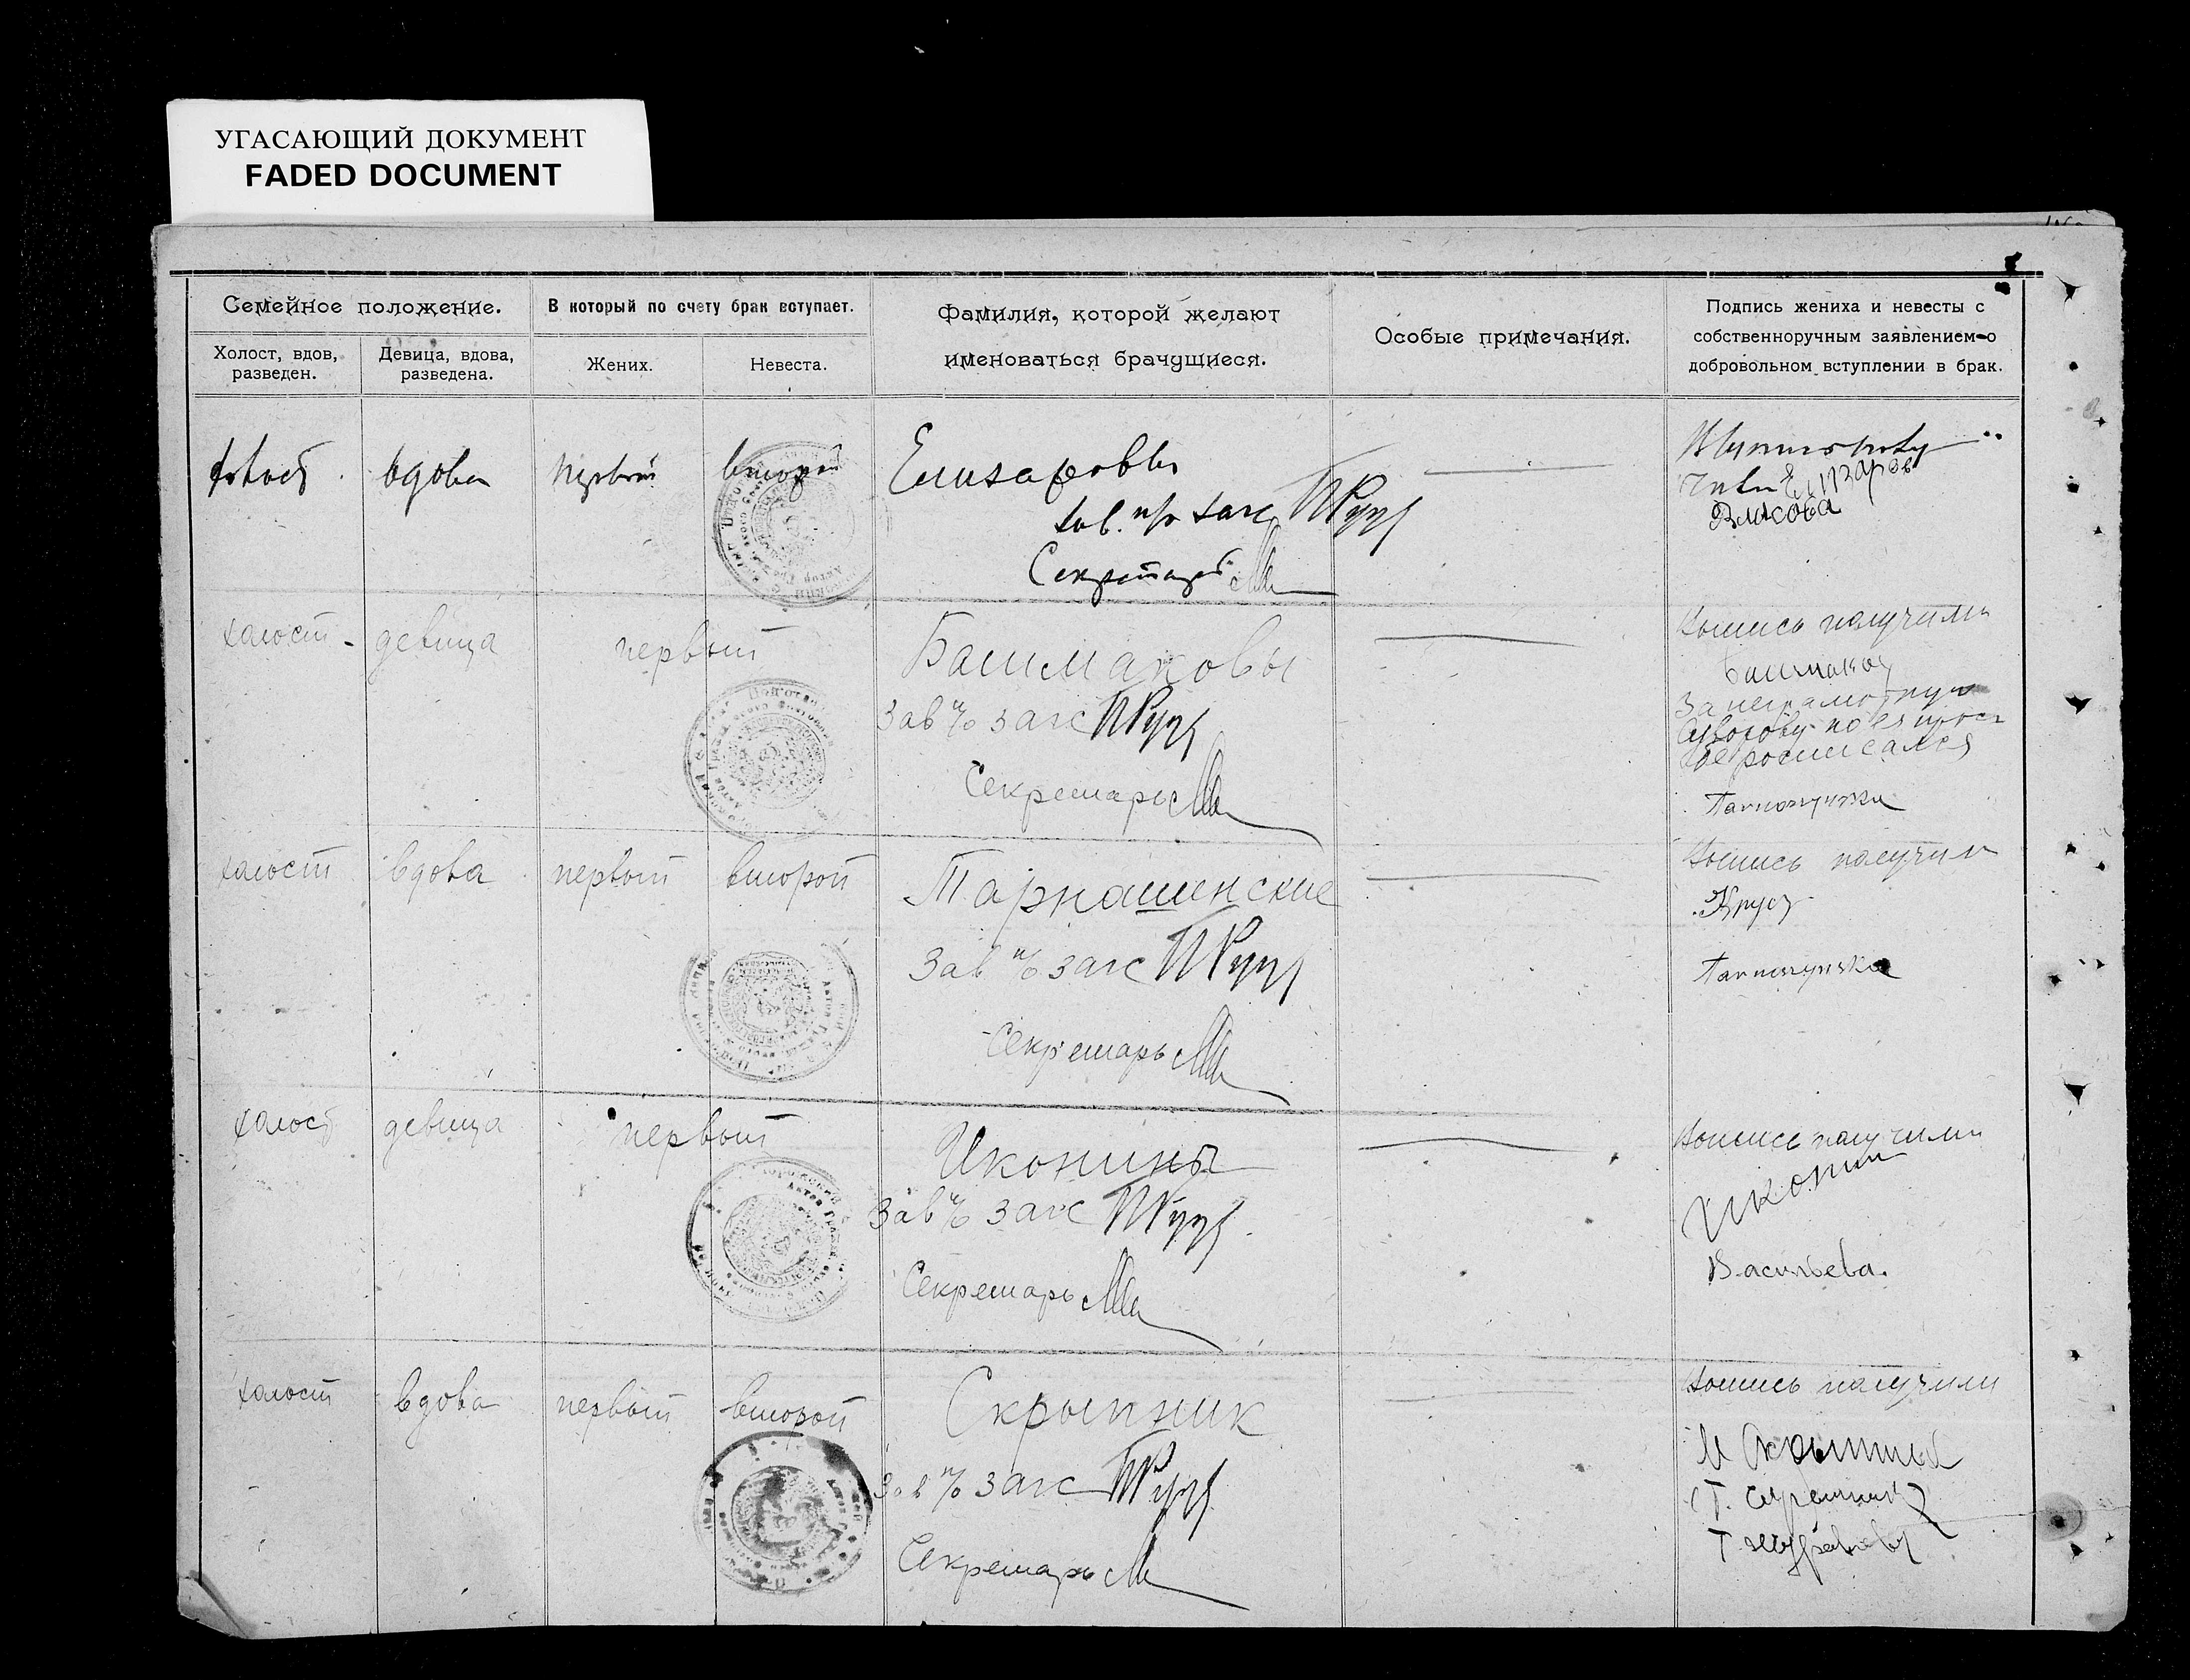 УГАСАЮЩИЙ ДОКУМЕНТ
FADED DOCUMENT
Семейное положение.
В который по счету брак вступает.
Фамилия, которой желают
именоваться брачущиеся.
Особые примечания.
Подпись жениха и невесты с
собственноручным заявлением о
добровольном вступлении в брак.
Холост, вдов,
разведен.
Девица, вдова,
разведена.
Жених.
Невеста.
холост вдова первый второй
Елизаровы
Зав. п/о загс
Секретарь
Елизаров
Власова
холост - девица первый
Башмаковы
Зав п/о загс
Секретарь
Выпись получили
Башмаков
За неграмотную
по ея прось
бе росписался
холост вдова первый второй
Тарнашинские
Зав п/о загс
Секретарь
Выпись получили
холост девица первый
Иконины
Зав п/о загс
Секретарь
Выпись получили
Иконин
Васильева.
холост вдова первый второй
Скрыпник
Зав п/о загс
Секретарь
Выпись получили
М Скрыпник